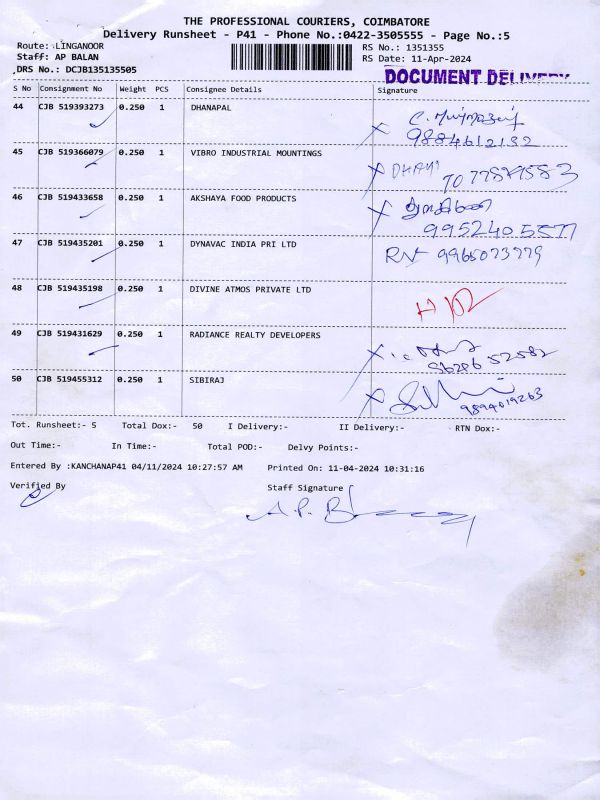 THE PROFESSIONAL COURIERS, COIMBATORE
Delivery Runsheet - P41 - Phone No.:0422-3505555 - Page No.:5
Route: LINGANOOR RS No.: 1351355
Staff: AP BALAN RS Date: 11-Apr-2024
DRS No.: DCJB135135505 DOCUMENT DELIVERY
S No Consignment No Weight PCS Consignee Details Signature
44 CJB 519393273 0.250 1 DHANAPAL
9884612132
45 CJB 519366079 0.250 1 VIBRO INDUSTRIAL MOUNTINGS
46 CJB 519433658 0.250 1 AKSHAYA FOOD PRODUCTS
9952405577
47 CJB 519435201 0.250 1 DYNAVAC INDIA PRI LTD
48 CJB 519435198 0.250 1 DIVINE ATMOS PRIVATE LTD
49 CJB 519431629 0.250 1 RADIANCE REALTY DEVELOPERS
50 CJB 519455312 0.250 1 SIBIRAJ
9894019263
Tot. Runsheet:- 5 Total Dox:- 50 I Delivery:- II Delivery:- RTN Dox:-
Out Time:- In Time:- Total POD:- Delvy Points:-
Entered By :KANCHANAP41 04/11/2024 10:27:57 AM Printed On: 11-04-2024 10:31:16
Verified By Staff Signature
A.P.